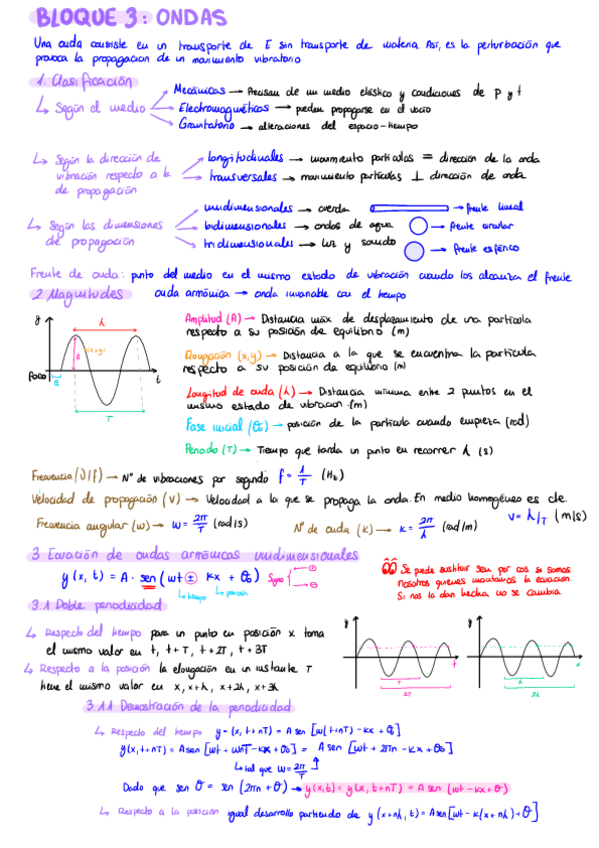 BLOQUE 3: ONDAS
Una onda consiste en un transporte de E sin transporte de materia. Así, es la perturbación que
provoca la propagación de un movimiento vibratorio
1. Clasificación
↳ Según el medio
Mecánicas → Precisan de un medio elástico y condiciones de P y t
Electromagnéticas → pueden propagarse en el vacío
Gravitatorio → alteraciones del espacio-tiempo
↳ Según la dirección de
vibración respecto a la
de propagación
longitudinales → movimiento partículas = dirección de la onda
transversales → movimiento partículas ⊥ dirección de onda
↳ Según las dimensiones
de propagación
unidimensionales → cuerda → frente lineal
bidimensionales → ondas de agua → frente circular
tridimensionales → luz y sonido → frente esférico
Frente de onda: punto del medio en el mismo estado de vibración cuando los alcanza el frente
2 Magnitudes onda armónica → onda invariable con el tiempo
y λ
A
(x,y)
foco t
T
Amplitud (A) → Distancia máx de desplazamiento de una partícula
respecto a su posición de equilibrio (m)
Elongación (x,y) → Distancia a la que se encuentra la partícula
respecto a su posición de equilibrio (m)
Longitud de onda (λ) → Distancia mínima entre 2 puntos en el
mismo estado de vibración (m)
Fase inicial (θ₀) → posición de la partícula cuando empieza (rad)
Periodo (T) → Tiempo que tarda un punto en recorrer λ (s)
Frecuencia (υ/f) → Nº de vibraciones por segundo f = 1/T (Hz)
Velocidad de propagación (v) → Velocidad a la que se propaga la onda. En medio homogéneo es cte.
v = λ/T (m/s)
Frecuencia angular (w) → w = 2π/T (rad/s) Nº de onda (K) → K = 2π/λ (rad/m)
3 Ecuación de ondas armónicas unidimensionales
y (x, t) = A · sen (wt ± kx + θ₀) Signo ⊖ ⊕
↳ tiempo ↳ posición
Se puede sustituir sen por cos si somos
nosotros quienes montamos la ecuación.
Si nos la dan hecha no se cambia
3.1 Doble periodicidad
↳ Respecto del tiempo para un punto en posición x toma
el mismo valor en t, t+T, t+2T, t+3T
↳ Respecto a la posición la elongación en un instante T
tiene el mismo valor en x, x+λ, x+2λ, x+3λ
y t
T
2T
y x
λ
2λ
3.1.1 Demostración de la periodicidad
↳ Respecto del tiempo y = (x, t+nT) = A sen [w(t+nT) - kx + θ₀]
y(x, t+nT) = A sen [wt + wnT - kx + θ₀] = A sen [wt + 2πn - kx + θ₀]
↳ tal que w = 2π/T
Dado que sen θ = sen (2πn + θ) → y(x,t) = y(x, t+nT) = A sen (wt - kx + θ)
↳ Respecto a la posición igual desarrollo partiendo de y (x+nλ, t) = A sen [wt - k(x+nλ) + θ]